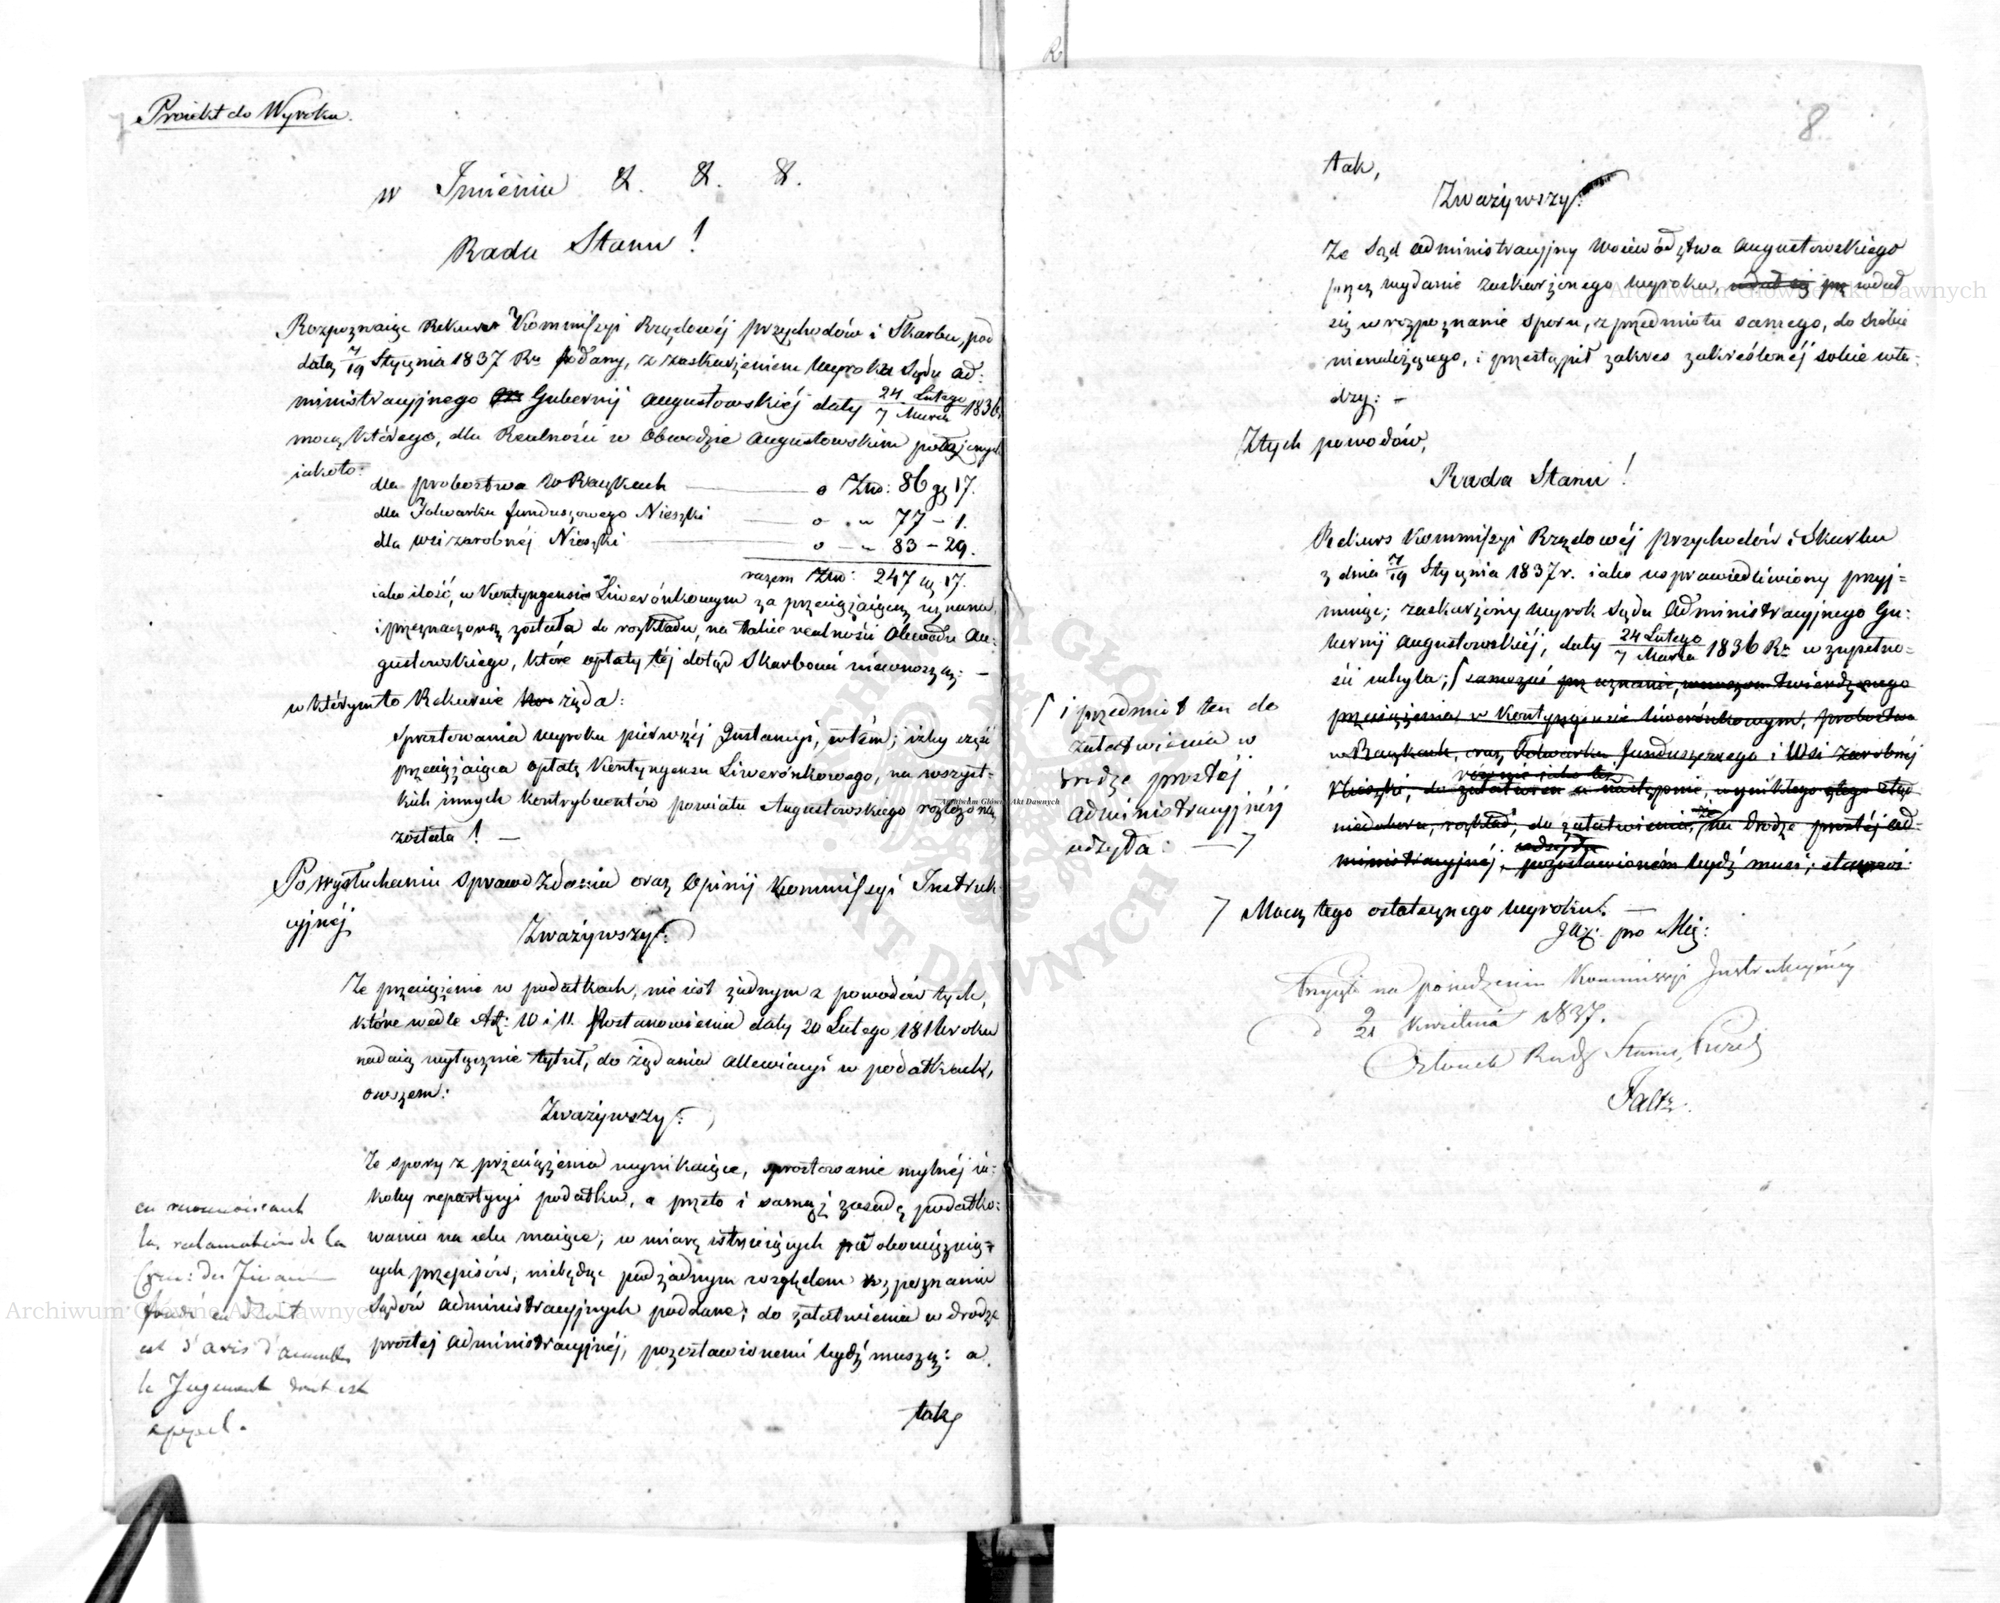 Proiekt do Wyroku.
w Imieniu &. &. &.
Rada Stanu!
Rozpoznaiąc Rekurs Kommissyi Rządowéj Przychodów i Skarbu, pod
datą 7/19 Stycznia 1837 Ru podany, z zaskarżeniem Wyroku Sądu Ad-
ministracyjnego Gubernij Augustowskiéj daty 24 Lutego/7 Marca 1836
mocą którego, dla Realności w Obwodzie Augustowskim położonych
iakoto:
dla probostwa w Raczkach — o Złp: 86 gr 17.
dla Folwarku funduszowego Nieszki — o — „ 77 – 1.
dla wsi zarobnéj Nieszki — o — „ 83 – 29.
razem Złp: 247 gr 17.
iako ilość, w Kontyngensie Liwerónkowym za przeciążaiącą uznana,
i przeznaczoną została do rozkładu, na takie realności Obwodu Au-
gustowskiego, które opłaty téj dotąd Skarbowi niewnoszą; —
w którymto Rekursie żąda:
sprostowania wyroku pierwszéj Instancyi, w tém; iżby część
przeciążaiąca opłatę Kontyngensu Liwerónkowego, na wszyst-
kich innych Kontrybuentów powiatu Augustowskiego rozłożoną
została! —
Po wysłuchaniu Sprawozdania oraz Opinij Kommissyi Instruk-
cyjnéj
Zważywszy:
Że przeciążenie w podatkach, nie iest żadnym z powodów tych,
które wedle Art: 10 i 11. Postanowienia daty 20 Lutego roku
nadaią wyłącznie tytuł, do żądania allewiacyi w podatkach,
owszem:
Zważywszy:
Że spory z przeciążenia wynikaiące, sprostowanie mylnéj ia-
koby repartycyi podatku, a przeto i samąż zasadę podatko-
wania na celu maiące; w miarę istnieiących obowiązuią-
cych przepisów, niebędąc pod żadnym względem poznaniu
Sądów Administracyjnych poddane; do załatwienia w drodze
prostéj Administracyjnéj, pozostawionemi bydź muszą: a
tak,
en reconnoissant
la reclamation de la
Com: des Finan
fondé en droit
est d'avis d'annuller
le Jugement dont est
appel.
8
tak,
Zważywszy:
Że Sąd Administracyjny Województwa Augustowskiego
przez wydanie zaskarżonego Wyroku, wdał się wdał
się w rozpoznanie sporu, z przedmiotu samego, do siebie
nienależącego, i przestąpił zakres zakreślonéj sobie wła-
dzy: —
Z tych powodów,
Rada Stanu!
Rekurs Kommissyi Rządowéj Przychodów i Skarbu
z dnia 7/19 Stycznia 1837 r. iako usprawiedliwiony przyj-
muiąc; zaskarżony wyrok Sądu Administracyjnego Gu-
bernij Augustowskiéj, daty 24 Lutego/7 Marca 1836 Ru w zupełno-
ści uchyla; samoząś uznanie, twierdzonego
przeciążenia w Kontyngensie Liwerónkowym, probostwa
w Raczkach, oraz Folwarku funduszowego i Wsi zarobnéj
Nieszki, wynikłego ztego
niedoboru, rozkład, do załatwienia, na drodze prostéj Ad-
ministracyjnéj, pozostawioném bydź musi,
i przedmiot ten do
załatwienia w
drodze prostéj
administracyjnéj
odsyła: —
Mocą tego ostatecznego Wyroku. —
pro
Przyjęto na posiedzeniu Kommissyi Instrukcyjnéj
d 9/21 Kwietnia 1837.
Członek Rady Stanu,
Faltz.
Archiwum Główne Akt Dawnych